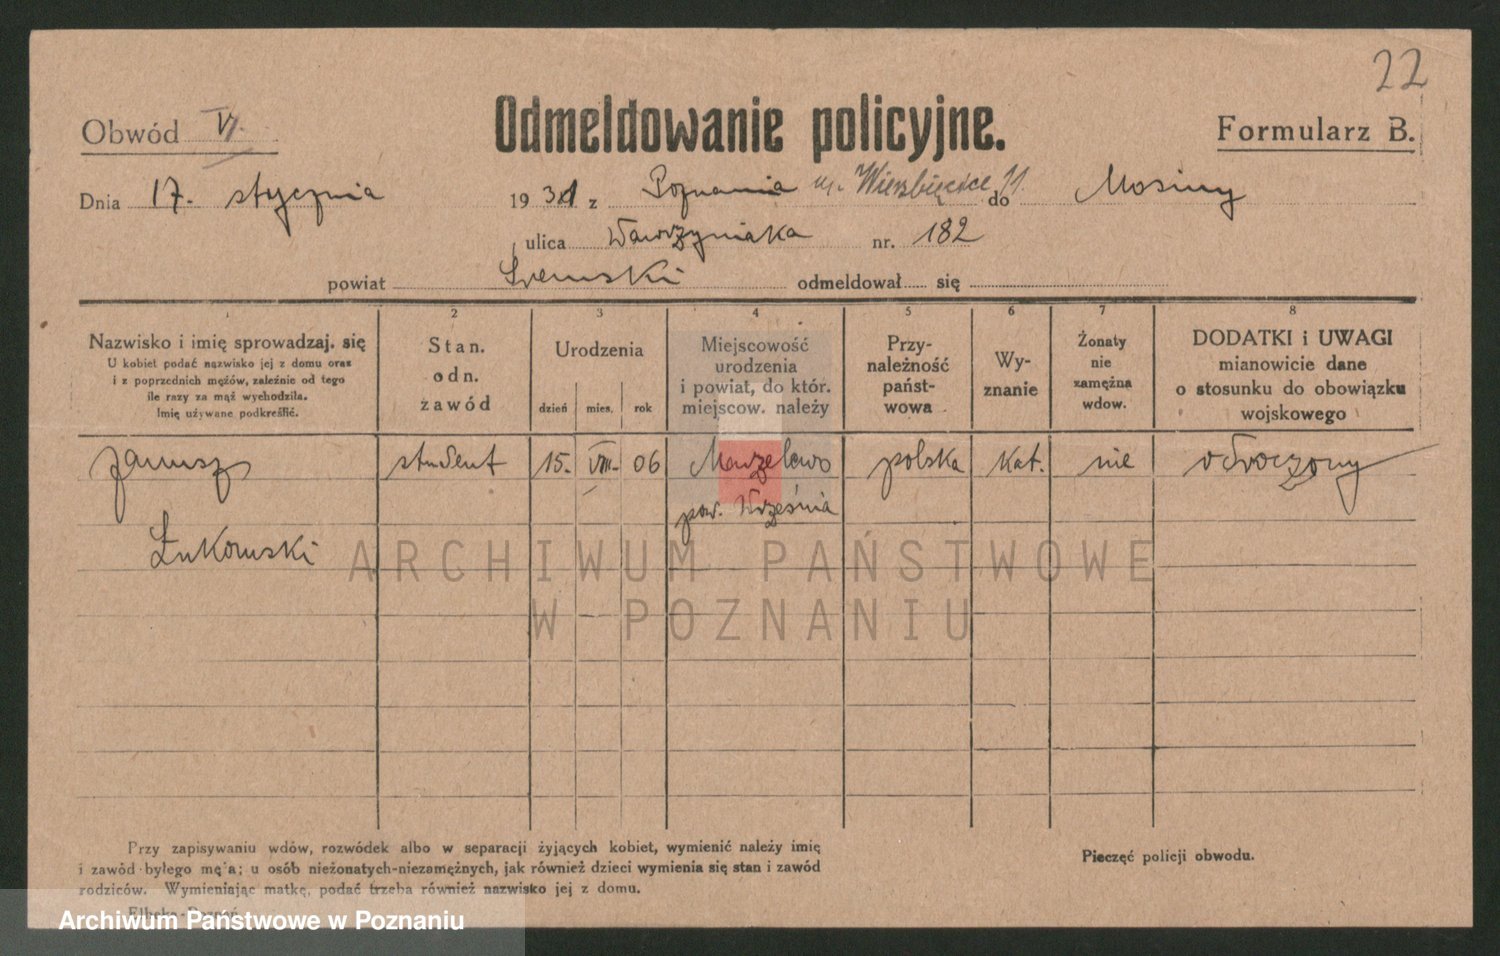 22
Obwód VI.
Odmeldowanie policyjne.
Formularz B.
Dnia 17. stycznia 1931 z Poznania ul. Wierzbięcice 11. do Mosiny
ulica Wawrzyniaka nr. 182
powiat Śremski odmeldował się
1 2 3 4 5 6 7 8
Nazwisko i imię sprowadzaj. się
U kobiet podać nazwisko jej z domu oraz
i z poprzednich mężów, zależnie od tego
ile razy za mąż wychodziła.
Imię używane podkreślić.
Stan.
odn.
zawód
Urodzenia
dzień mies. rok
Miejscowość
urodzenia
i powiat, do któr.
miejscow. należy
Przy-
należność
państ-
wowa
Wy-
znanie
Żonaty
nie
zamężna
wdow.
DODATKI i UWAGI
mianowicie dane
o stosunku do obowiązku
wojskowego
Janusz student 15. VIII. 06 polska kat. nie odroczony
pow. Września
Łukomski
ARCHIWUM PAŃSTWOWE
W POZNANIU
Przy zapisywaniu wdów, rozwódek albo w separacji żyjących kobiet, wymienić należy imię
i zawód byłego mę'a; u osób nieżonatych-niezamężnych, jak również dzieci wymienia się stan i zawód
rodziców. Wymieniając matkę, podać trzeba również nazwisko jej z domu.
Pieczęć policji obwodu.
Archiwum Państwowe w Poznaniu